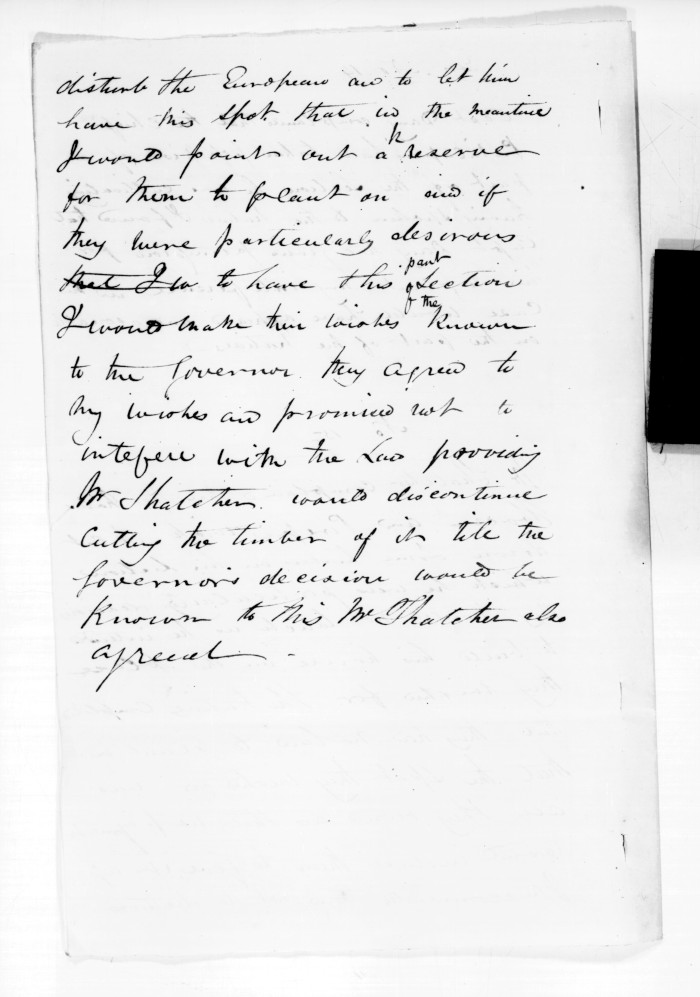 disturb the European and to let him
have this spot that in the meantime
I would point out a reserve
for them to plant on and if
they were particularly desirous
that I w to have this part of the Section
I would make their wishes known
to the Governor they agreed to
my wishes and promised not to
intefere with the Law providing
Mr Thatcher would discontinue
Cutting the timber of it till the
Governor's decision would be
Known to this Mr Thatcher also
agreed -